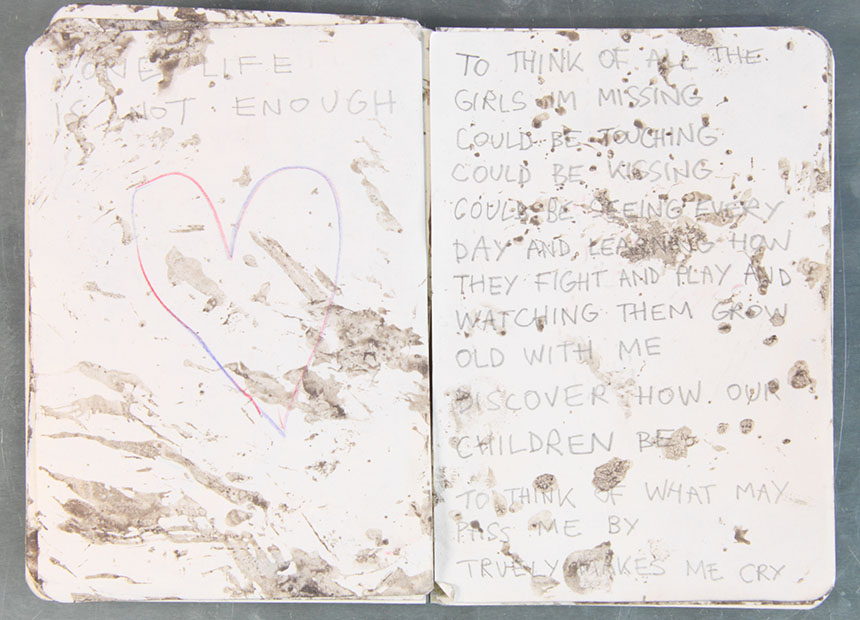 ONE LIFE
IS NOT ENOUGH
TO THINK OF ALL THE
GIRLS IM MISSING
COULD BE TOUCHING
COULD BE KISSING
COULD BE SEEING EVERY
DAY AND LEARNING HOW
THEY FIGHT AND PLAY AND
WATCHING THEM GROW
OLD WITH ME
DISCOVER HOW OUR
CHILDREN BE
TO THINK OF WHAT MAY
PASS ME BY
TRUELY MAKES ME CRY